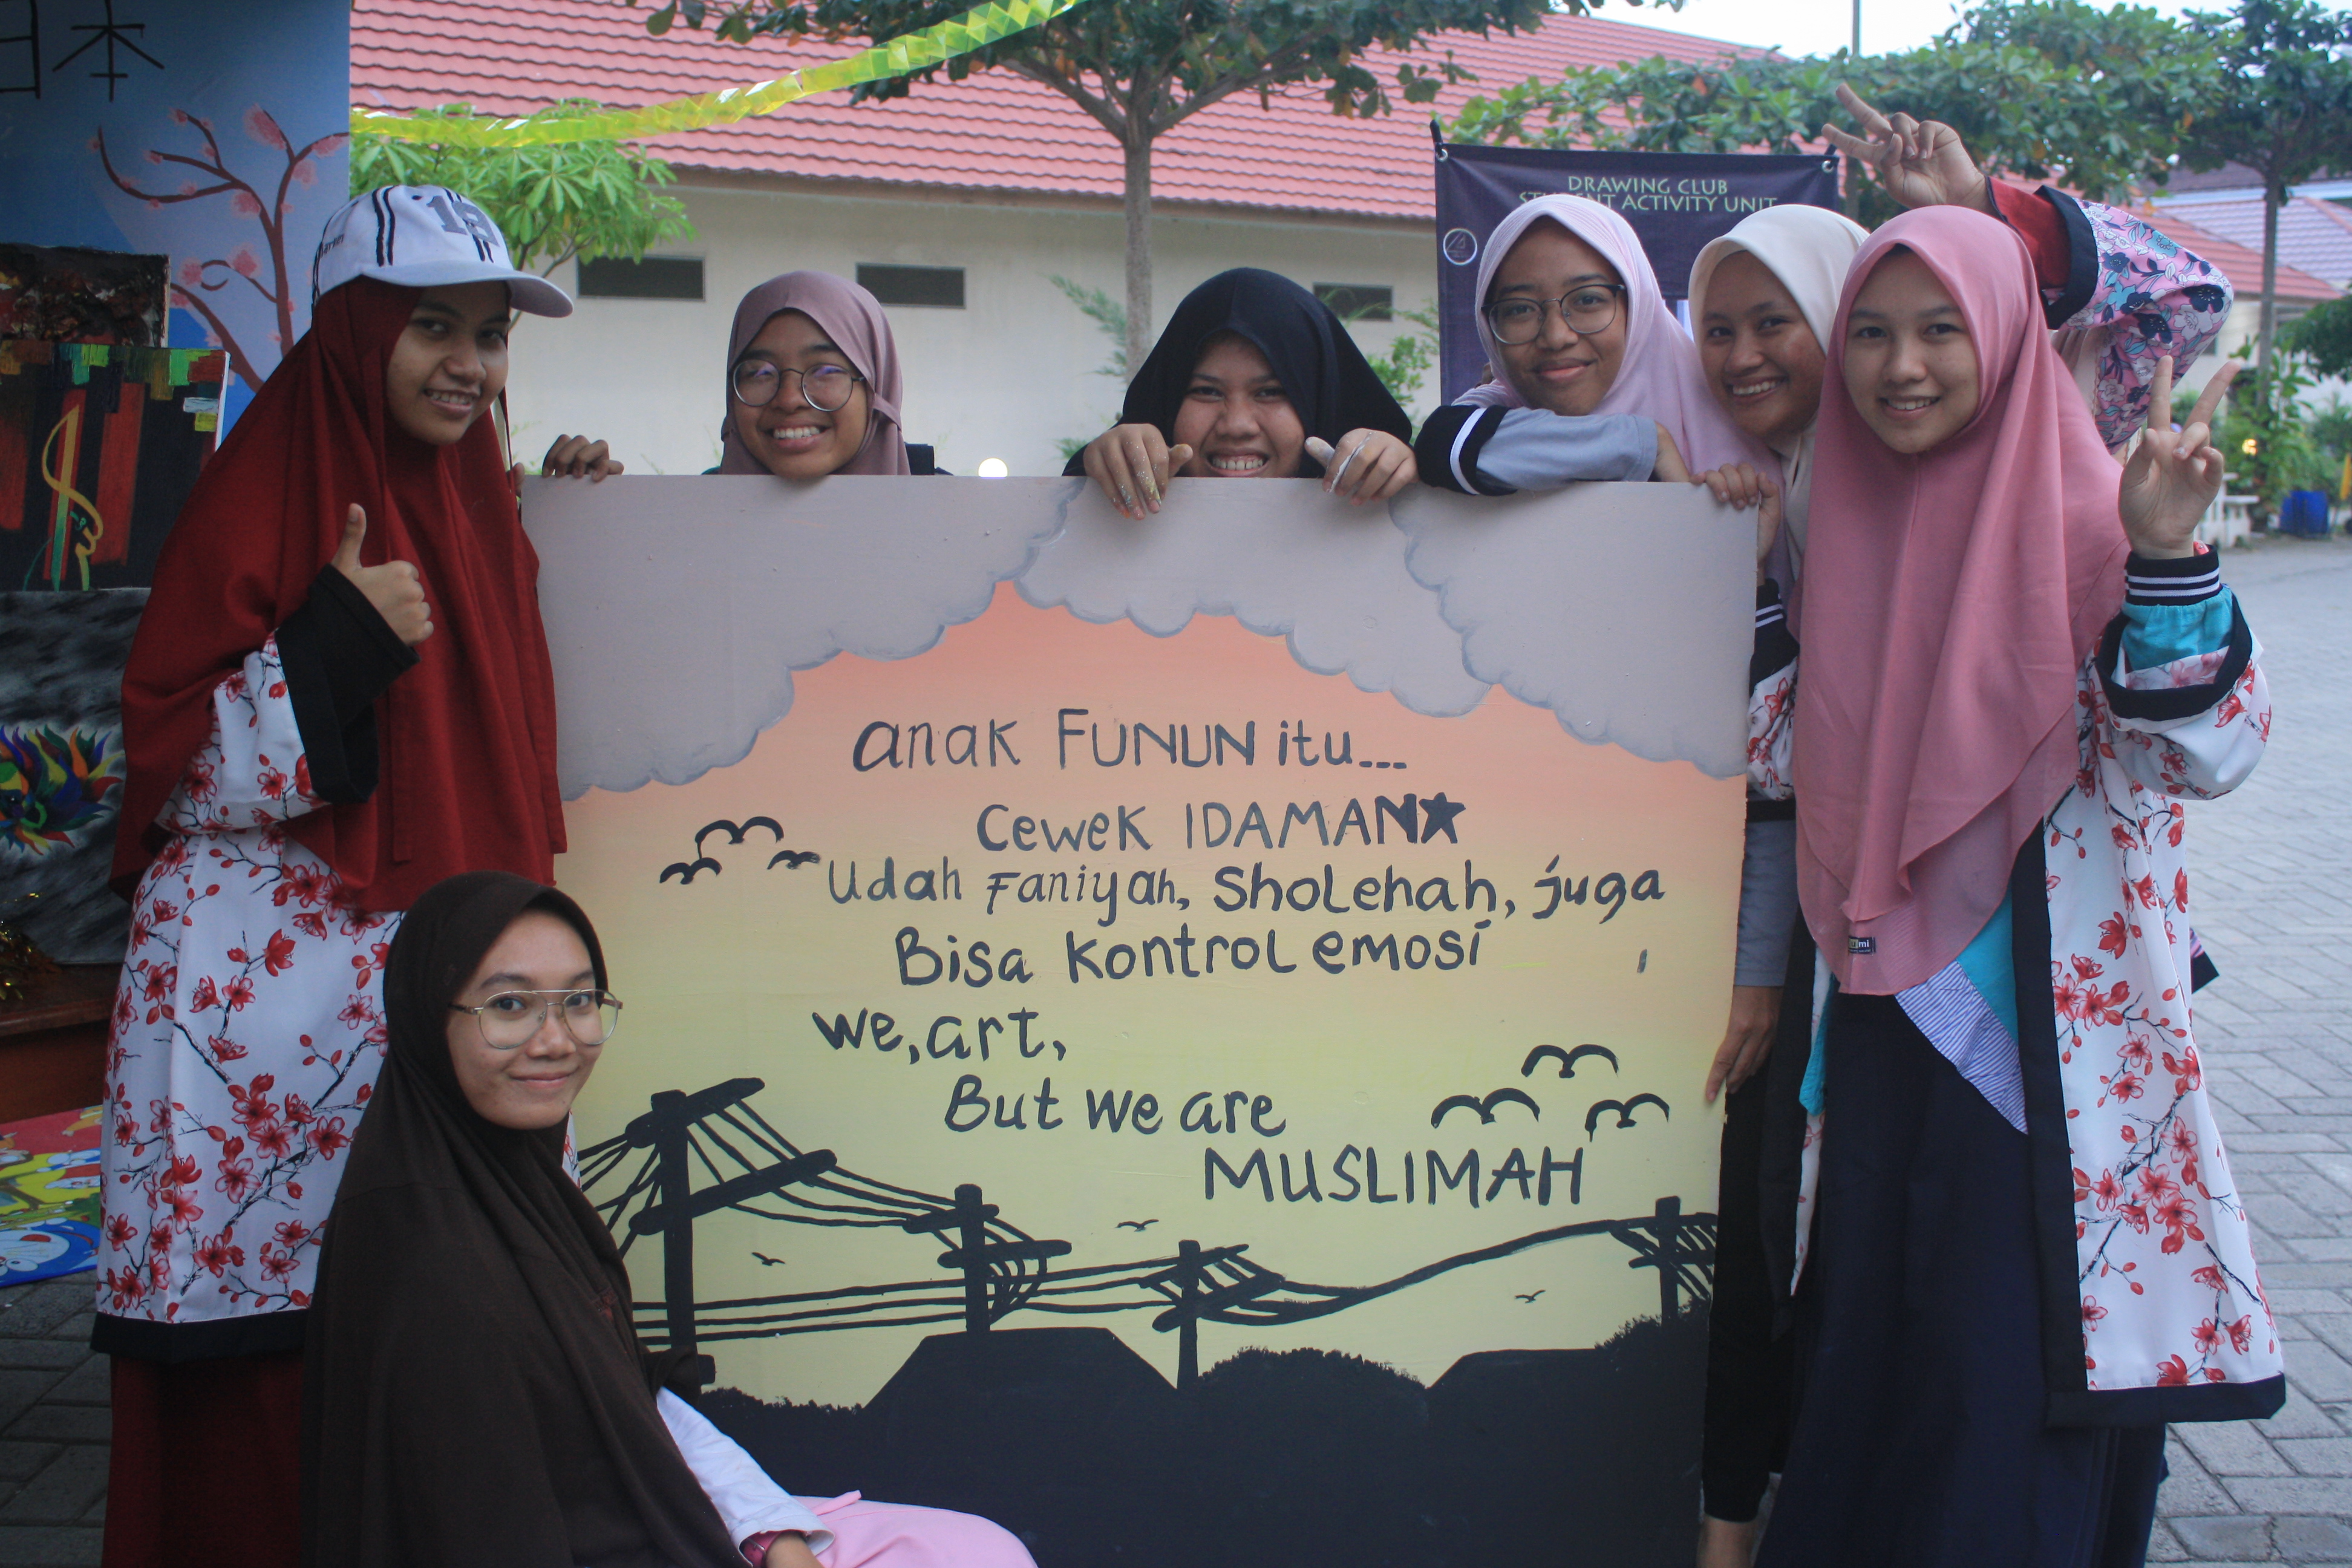 日本
DRAWING CLUB
STUDENT ACTIVITY UNIT
anak FUNUN itu...
Cewek IDAMAN★
Udah Faniyah, Sholehah, juga
Bisa Kontrol emosi
We, art,
But we are
MUSLIMAH